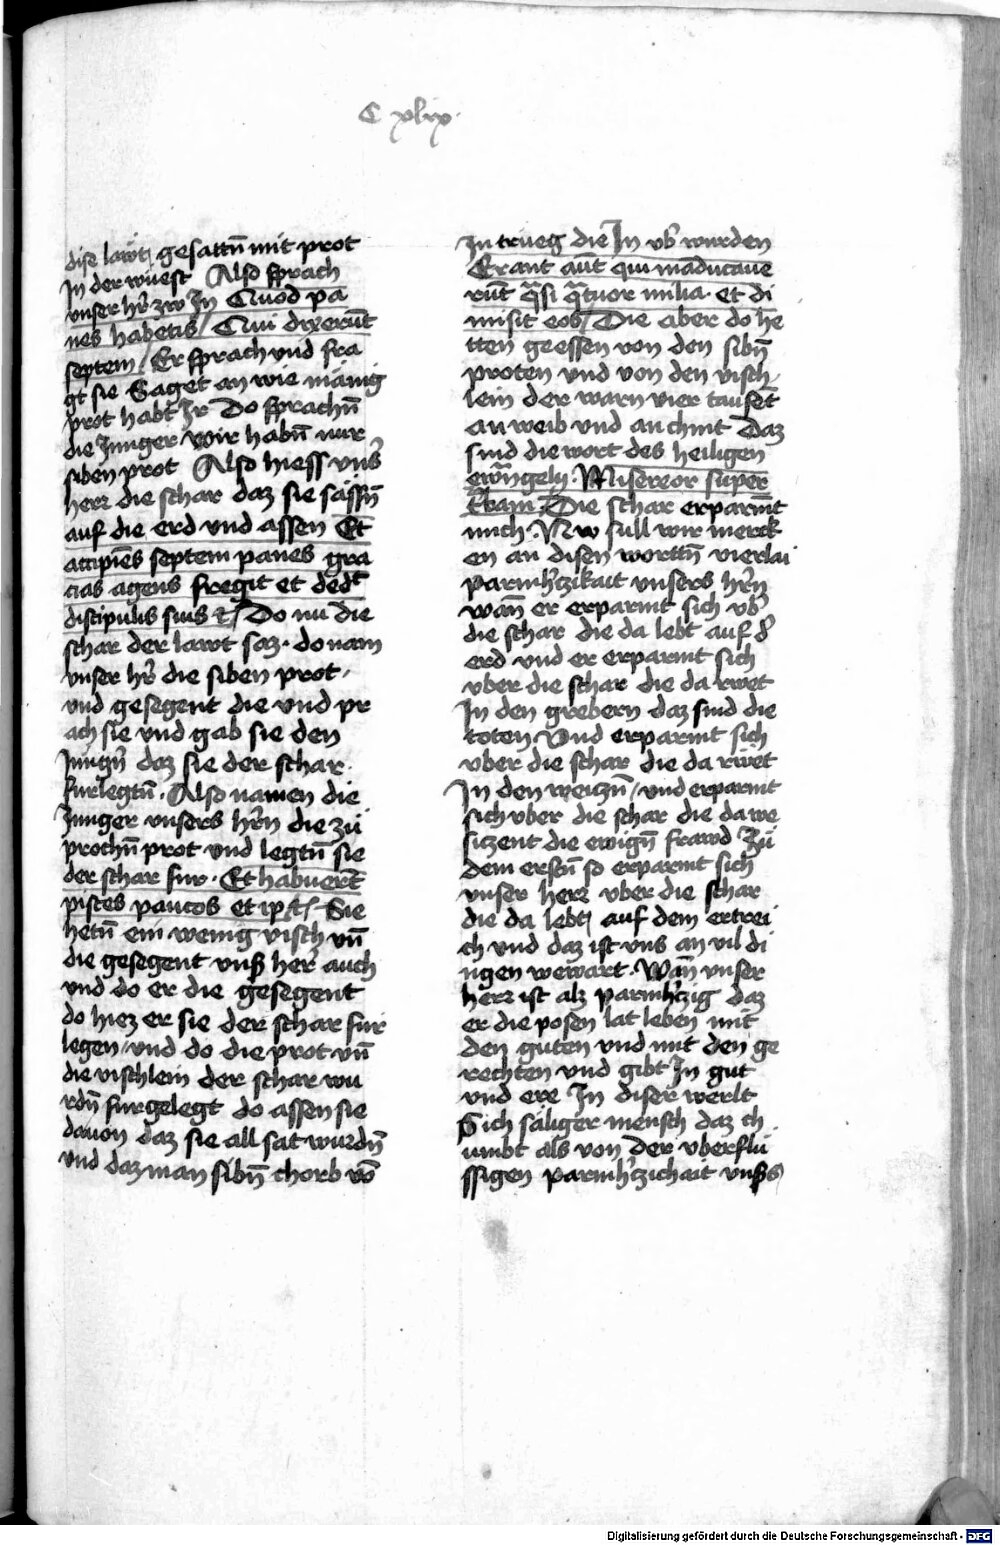 C xlix
dise lawt gesattn̄ mit prot
In der wüest Also sprach
vnser hr̄ zw In Quod pa
nes habetis / Qui dixerūt
septem / Er sprach vnd fra
gt sie Saget an wie mänig
prot habt Ir Do sprachn̄
die Junger wir habn̄ nur
siben prot Also hiess vnsˀ
herr die schar daz sie sässn̄
auf die erd vnd assen Et
accipiēs septem panes gra
cias agens fregit et dedᵗ
discipulis suis ⁊c̄ / Do nu die
schar der lawt saz · do nam
vnser hr̄ die siben prot ·
vnd gesegent die vnd pr
ach sie vnd gab sie den
Jungn̄ daz sie der schar
furlegtn̄ · Also namen die
Junger vnsers hr̄n die zü
prochn̄ prot vnd legtn̄ sie
der schar fur · Et habuerūt
pisces paucos et ip̄ ⁊c̄ / Sie
hetn̄ ein wenig visch vn̄
die gesegent vnsˀ herˀ auch
vnd do er die gesegent
do hiez er sie der schar fur
legen / vnd do die prot vn̄
die vischlein der schar wu
rdn̄ furgelegt do assen sie
dauon daz sie all sat wurdn̄
vnd daz man sibn̄ chorb vō
In trueg die In vbˀ wurden
Erant aūt qui māducaue
rūt q̄si q̄tuor milia · et di
misit eos / Die aber do he
tten geessen von den sibn̄
proten vnd von den visch
lein der warn vier tausēt
an weib vnd an chint Daz
sind die wort des heiligen
ewāngely · Misereor super
t̄bam · Die schar erparm̄t
mich · Nw sull wir merck
en an disen worttn̄ vierlai
parmhˀczikait vnsers hr̄n
wān er erparmt sich vbˀ
die schar die da lebt auf dˀ
erd vnd er erparmt sich
vber die schar die da rwet
In den grebern daz sind die
toten Vnd erparmt sich
vber die schar die da rwet
In den weiczn̄ / vnd erparmt
sich vber die schar die da we
siczent die ewign̄ frawd Zü
dem erstn̄ so erparmt sich
vnser herr vber die schar
die da lebt auf dem ertrei
ch vnd daz ist vns an vil di
ngen wewart · Wān vnser
herr ist alz parmhˀczig daz
er die posen lat leben mit
den guten vnd mit den ge
rechten vnd gibt In gut
vnd ere In diser werlt
Sich säliger mensch daz ch
umbt als von der vberflü
ssigen parmhˀczichait vnsˀs
Digitalisierung gefördert durch die Deutsche Forschungsgemeinschaft - DFG